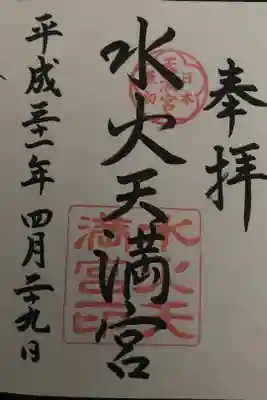 奉拝
水火天満宮
平成三十一年四月二十九日
水火天
満宮印